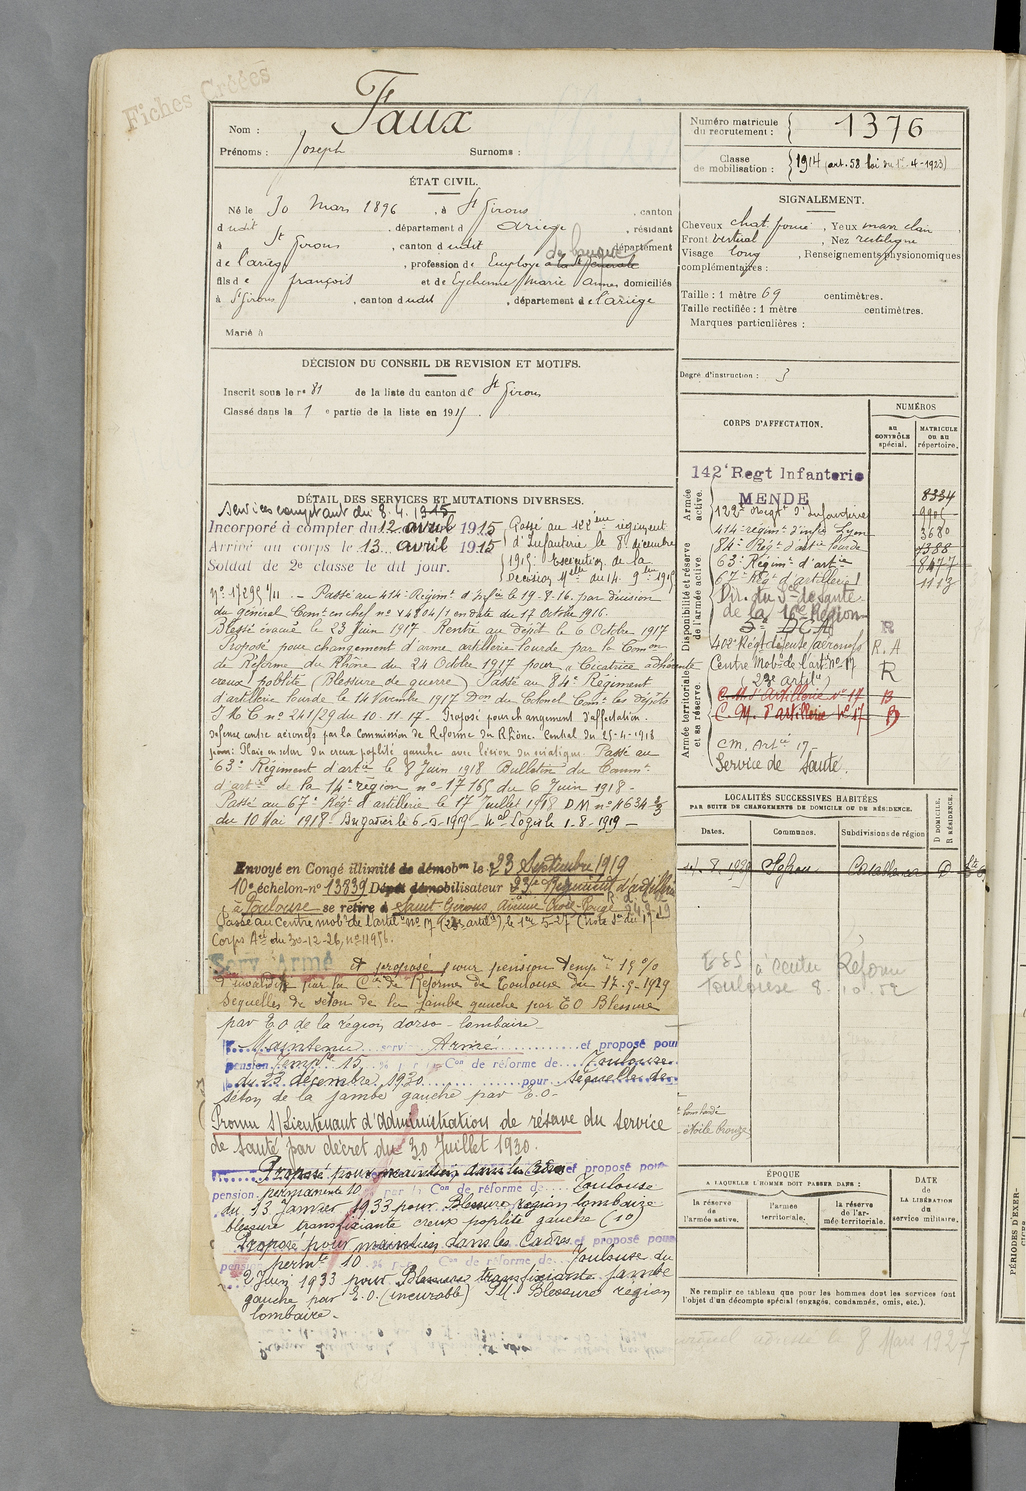 Fiches Créées
Nom : Faux
Prénoms : Joseph Surnoms :
Numéro matricule du recrutement : 1376
Classe de mobilisation : 1914 (art. 58 loi du 1er-4-1923)
ÉTAT CIVIL.
Né le 30 Mars 1896, à St Girons, canton
dudit, département d Ariège, résidant
à St Girons, canton dudit département
de l'ariège, profession de Employé de banque
fils de françois et de Eychenne Marie Anne, domiciliés
à St Girons, canton dudit, département de l'ariège
Marié à
SIGNALEMENT.
Cheveux chat. foncé, Yeux marr clair,
Front vertical, Nez rectiligne
Visage long, Renseignements physionomiques
complémentaires :
Taille : 1 mètre 69 centimètres.
Taille rectifiée : 1 mètre centimètres.
Marques particulières :
Degré d'instruction : 3
DÉCISION DU CONSEIL DE REVISION ET MOTIFS.
Inscrit sous le no 81 de la liste du canton de St Girons
Classé dans la 1 e partie de la liste en 1915.
DÉTAIL DES SERVICES ET MUTATIONS DIVERSES.
Services comptant du 8.4.1915
Incorporé à compter du 12 avril 1915
Arrivé au corps le 13 avril 1915
Soldat de 2e classe le dit jour.
Passé au 122ème régiment
d'Infanterie le 8 décembre
1915. Exécution de la
Décision Melle du 14 9bre 1915
no 17295 1/11. - Passé au 414e Régimt d'Infie le 19-8-16. par décision
du général Comt en chef no 14804/1 en date du 17 Octobre 1916.
Blessé évacué le 23 Juin 1917. Rentré au dépôt le 6 Octobre 1917
Proposé pour changement d'arme artillerie lourde par la Comon
de Réforme du Rhône du 24 Octobre 1917 pour "Cicatrice adhérente
creux poplité (Blessure de guerre) Passé au 84e Régiment
d'artillerie lourde le 14 Novembre 1917 Don du Colonel Comt les Dépôts
no 241/29 du 10-11-17 - Proposé pour changement d'affectation.
défense contre aéronefs par la Commission de Réforme du Rhône. Central du 25-4-1918
pour: Plaie en séton du creux poplité gauche avec lésion du sciatique. Passé au
63e Régiment d'artie le 8 Juin 1918 Bulletin du Commt
d'artie de la 14e région no 17165 du 6 Juin 1918 -
Passé au 67e Régt d'artillerie le 17 Juillet 1918 DM no 4634 3/3
du 10 Mai 1918. Brigadier le 6-5-1919 - Mal Logis le 1-8-1919 -
Envoyé en Congé illimité de démobon le 23 Septembre 1919
10e échelon no 13839 Dépôt démobilisateur 23e Régiment d'artillerie
à Toulouse se retire à Saint Girons, Avenue
Passé au Centre mobre de l'artie no 17 (23e artie), le 1er 5-27 (note
Corps Aée du 30-12-26, no 11956.
Serv. Armé et proposé pour pension temp re 15 %
d'invalidité par la Con de Réforme de Toulouse du 17-9-1929
Séquelles de séton de la jambe gauche par EO Blessure
par E.O de la région dorso-lombaire-
Maintenu serv. Armé et proposé pour
pension Tempre 15 % Con de réforme de Toulouse
du 23 décembre 1930 pour séquelles de
séton de la jambe gauche par E.O-
Promu S/Lieutenant d'Administration de réserve du service
de santé par décret du 30 Juillet 1930.
Proposé pour maintien dans les Cadres et proposé pour
pension permanente 10 par la Con de réforme de Toulouse
du 13 Janvier 1933 pour Blessure région lombaire
blessure transfixiante creux poplité gauche (10)
Proposé pour maintien dans les Cadres et proposé pour
pension permte 10 Con de réforme de Toulouse du
2 Juin 1933 pour Blessure transfixiante jambe
gauche par E.O. (incurable) Blessure région
lombaire.
CORPS D'AFFECTATION.
NUMÉROS
au CONTRÔLE spécial.
MATRICULE ou au répertoire.
Armée active.
Disponibilité et réserve de l'armée active
Armée territoriale et sa réserve.
142e Regt Infanterie
MENDE 8334
122e Régt d'Infanterie
414e régimt d'infie 3680
84e Régt d'artie lourde 1388
63e Régimt d'artie 8477
67e Régt d'artillerie 1113
Dir. du Sce de Santé
de la 16e Région
R
402e Régt défense aéronefs R.A
Centre Mobre de l'artie no 17 R
(23e artie)
C.M. d'Artillerie no 17 B
C.M. d'artillerie no 17 B
CM. Artie 17-
Service de Santé.
LOCALITÉS SUCCESSIVES HABITÉES
PAR SUITE DE CHANGEMENTS DE DOMICILE OU DE RÉSIDENCE.
Dates. Communes. Subdivisions de région D DOMICILE, R RÉSIDENCE.
8. 1929 Casablanca D
Centre Réforme
Toulouse 8.10.52
étoile bronze
ÉPOQUE
A LAQUELLE L'HOMME DOIT PASSER DANS :
la réserve de l'armée active.
l'armée territoriale.
la réserve de l'armée territoriale.
DATE de LA LIBÉRATION du service militaire.
Ne remplir ce tableau que pour les hommes dont les services font
l'objet d'un décompte spécial (engagés, condamnés, omis, etc.).
adresse le 8 Mars 1927
PÉRIODES D'EXER-